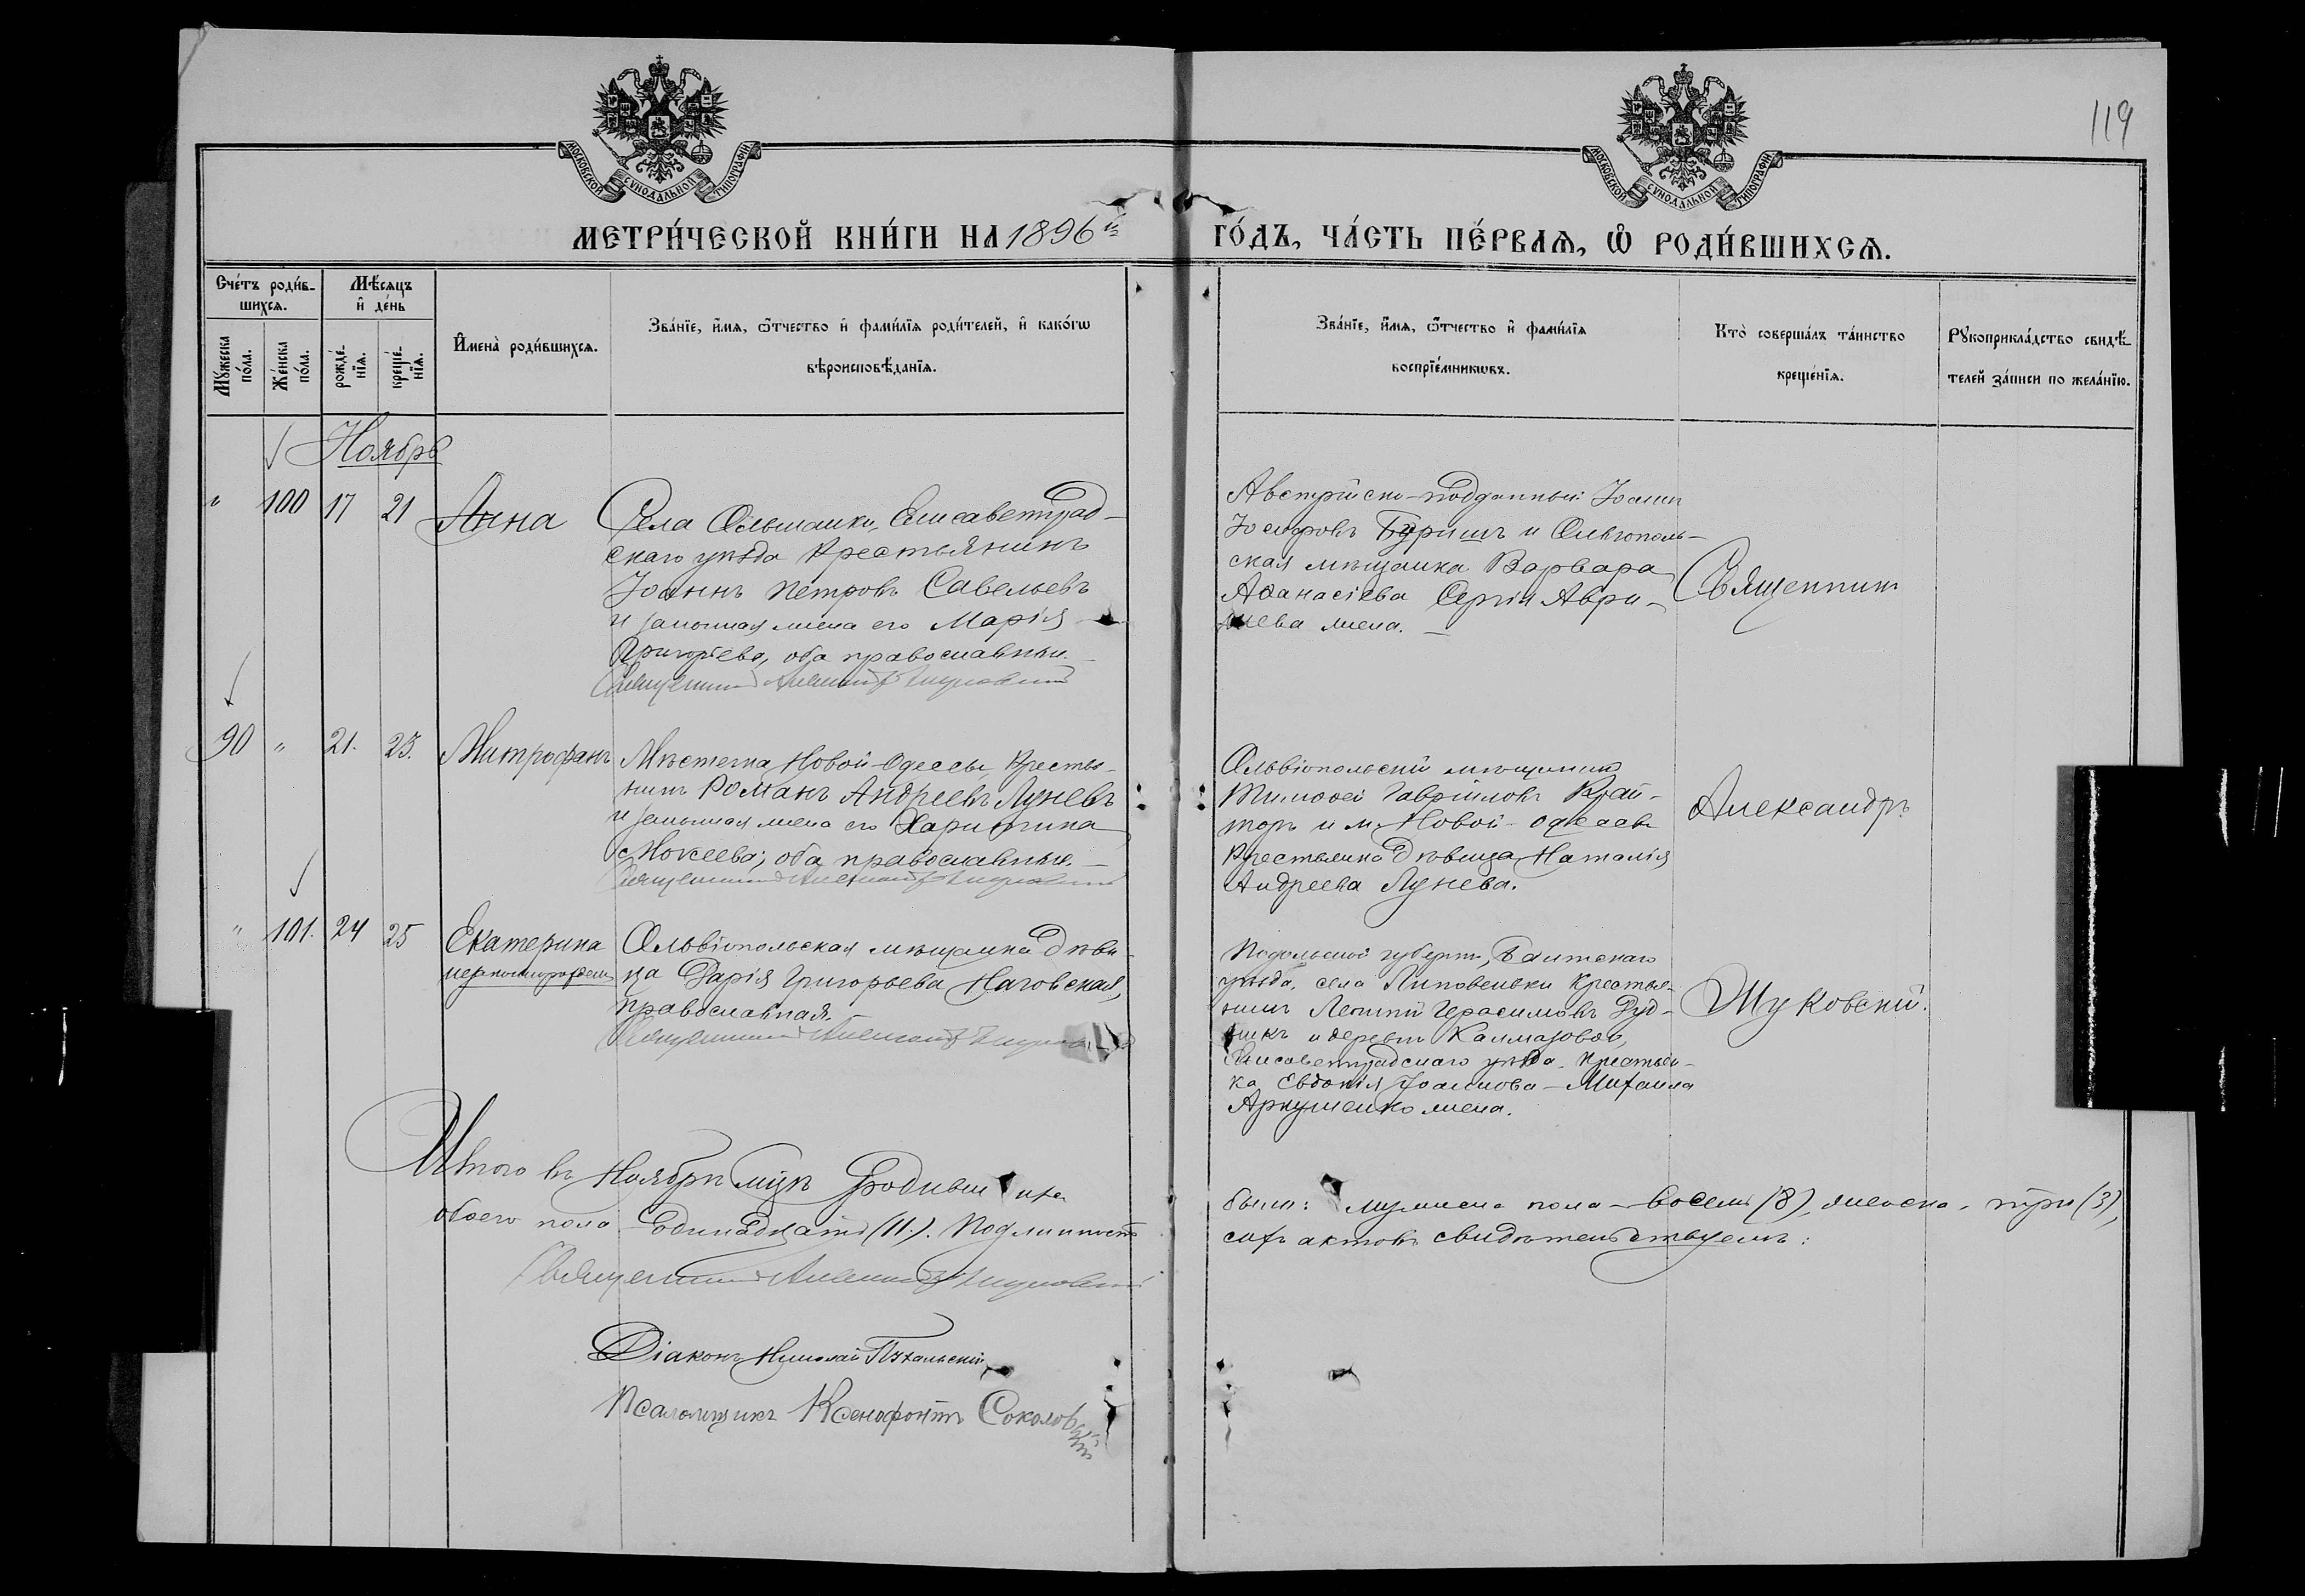 119
МОСКОВСКОЙ СѴНОДАЛЬНОЙ ТИПОГРАФІИ
МОСКОВСКОЙ СѴНОДАЛЬНОЙ ТИПОГРАФІИ
МЕТРИ́ЧЕСКОЙ КНИ́ГИ НА 1896 й
ГО́ДЪ, ЧА́СТЬ ПЕ́РВАѦ, Ѿ РОДИ́ВШИХСѦ.
Сче́тъ роди́в-
шихсѧ.
Мѣ́сѧцъ
и҆ де́нь
Мꙋ́жеска
по́ла.
Же́нска
по́ла.
рожде́-
нїѧ.
креще́-
нїѧ.
И҆мена̀ роди́вшихсѧ.
Зва́нїе, и҆́мѧ, ѻ҆́тчество и҆ фами́лїѧ роди́телей, и҆ како́гѡ
вѣроисповѣ́данїѧ.
Зва́нїе, и҆́мѧ, ѻ҆́тчество и҆ фами́лїѧ
воспрїе́мникѡвъ.
Кто̀ соверша́лъ та́инство
креще́нїѧ.
Рꙋкоприкла́дство свидѣ́-
телей за́писи по жела́нїю.
Ноябрь
" 100 17 21 Анна
Села Ольшанки, Елисаветград-
скаго уѣзда крестьянинъ
Іоаннъ Петровъ Савельевъ
и законная жена его Марія
Григорьева, оба православные.
Священникъ Александръ Жуковскій
Австрійско-подданный Іоаннъ
Іосифовъ Буришъ и Ольвіополь-
ская мѣщанка Варвара
Аѳанасіева Сергія Аври-
жена.
Священникъ
90 " 21. 23. Митрофанъ
Мѣстечка Новой-Одессы, кресть-
нинъ Романъ Андреевъ Луневъ
и законная жена его Харитина
Мокеева; оба православные.
Священникъ Александръ Жуковскій
Ольвіопольскій мѣщанинъ
Тимоѳей Гавріиловъ Край-
торъ и м. Новой-Одессы
крестьянка дѣвица Наталія
Андреева Лунева.
Александръ
" 101. 24 25 Екатерина
незаконнорожден
Ольвіопольская мѣщанка дѣви-
ца Дарія Григорьева Наговская,
православная.
Священникъ Александръ Жуковскій
Подольской губерніи, Балтскаго
уѣзда, села Липовеньки крестья-
нинъ Леонтій Герасимовъ Руд-
никъ и деревни Калмазовой,
Елисаветградскаго уѣзда крестьян-
ка Евдокія Іоаннова-Михаила
Аркушенко жена.
Жуковскій.
Итого въ Ноябрѣ мцѣ родившихся
обоего пола одинадцать (11.). Подлинность
было: мужеска пола-восемь (8), женска-три (3),
сихъ актовъ свидѣтельствуемъ:
Священникъ Александръ Жуковскій
Діаконъ Николай
Псаломщикъ Ксенофонтъ Соколовскій